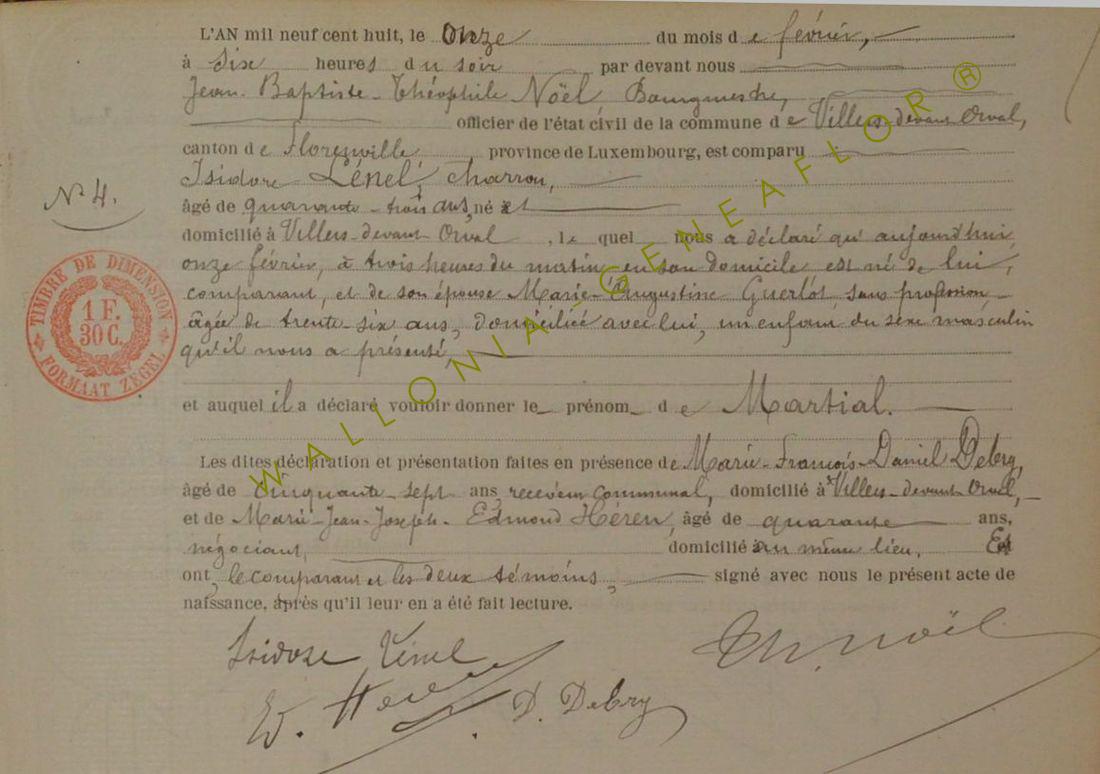 L'AN mil neuf cent huit, le Onze du mois de février,
à Six heures du soir par devant nous
Jean-Baptiste-Théophile Noël, Bourgmestre,
officier de l'état civil de la commune de Villers-devant-Orval,
canton de Florenville, province de Luxembourg, est comparu
Isidore Lénel, charron,
N° 4.
âgé de quarante-trois ans, né et
domicilié à Villers-devant-Orval, le quel nous a déclaré qu'aujourd'hui,
onze février, à trois heures du matin, en son domicile est né de lui,
comparant, et de son épouse Marie-Augustine Guerlot, sans profession,
âgée de trente-six ans, domiciliée avec lui, un enfant du sexe masculin
qu'il nous a présenté,
TIMBRE DE DIMENSION
1 F.
30 C.
FORMAAT ZEGEL
et auquel il a déclaré vouloir donner le prénom de Martial.
Les dites déclaration et présentation faites en présence de Marie-François-Daniel Debry,
âgé de Cinquante-sept ans, receveur communal, domicilié à Villers-devant-Orval,
et de Marie-Jean-Joseph-Edmond Héren, âgé de quarante ans,
négociant, domicilié au même lieu. Et
ont, le comparant et les deux témoins, signé avec nous le présent acte de
naissance, après qu'il leur en a été fait lecture.
Isidore Lénel Th. Noël
D. Debry
WALLONIA GENEAFLOR ®